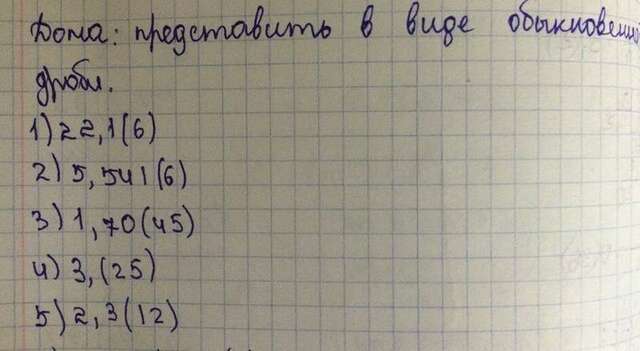 Дома: представить в виде обыкновенно
дроби.
1) 22,1(6)
2) 5,541(6)
3) 1,70(45)
4) 3,(25)
5) 2,3(12)